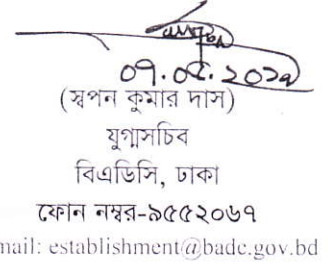 (স্বপন কুমার দাস)
যুগ্মসচিব
বিএডিসি, ঢাকা
ফোন নম্বর-৯৫৫২০৬৭
mail: establishment@badc.gov.bd